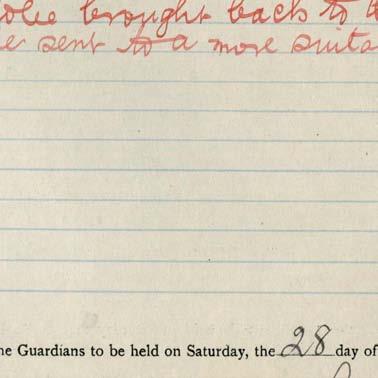 brought back to
sent to a more suita
ne Guardians to be held on Saturday, the 28 day of